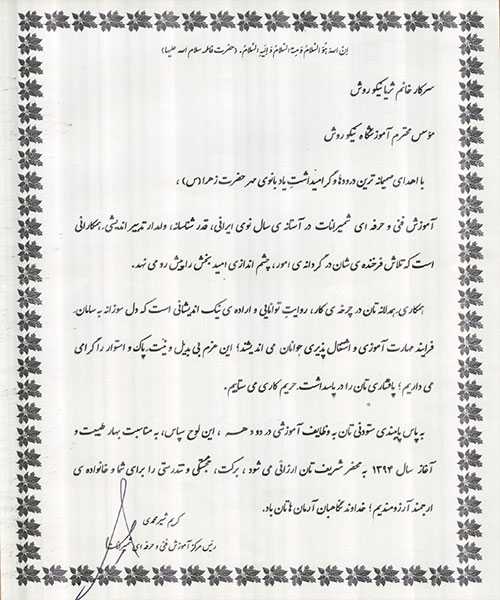 إنّ اللهَ هُوَ السَّلامُ وَ مِنهُ السَّلامُ وَ إلَیهِ السَّلامُ. (حضرت فاطمه سلام الله علیها)
سرکار خانم ثریا نیکوروش
مؤسس محترم آموزشگاه نیکوروش
با اهدای صمیمانه ترین درودها و گرامیداشتِ یاد بانوی مهر حضرت زهرا (س) ،
آموزش فنی و حرفه ای شمیرانات در آستانه ی سال نوی ایرانی، قدرشناسانه، وامدار تدبیر اندیشیِ همکارانی
است که تلاش فرخنده ی شان در گردانه ی امور، چشم اندازی امید بخش را پیش رو می نهد.
همکاریِ همدلانه تان در چرخه ی کار، روایتِ توانایی و اراده ی نیک اندیشانی است که دل سوزانه به سامانِ
فرایند مهارت آموزی و اشتغال پذیری جوانان می اندیشند؛ این عزم بی بدیل و نیّتِ پاک و استوار را گرامی
می داریم؛ پافشاری تان را در پاسداشتِ حریم کاری می ستاییم.
به پاس پایبندی ستودنی تان به وظایف آموزشی در دو دهه ، این لوح سپاس، به مناسبت بهار طبیعت و
آغاز سال ۱۳۹۴ به محضر شریف تان ارزانی می شود ، برکت، خجستگی و تندرستی را برای شما و خانواده ی
ارجمند آرزومندیم؛ خداوند نگاهبان آرمان هاتان باد.
کریم شیرمحمدی
رئیس مرکز آموزش فنی و حرفه ای شمیرانات